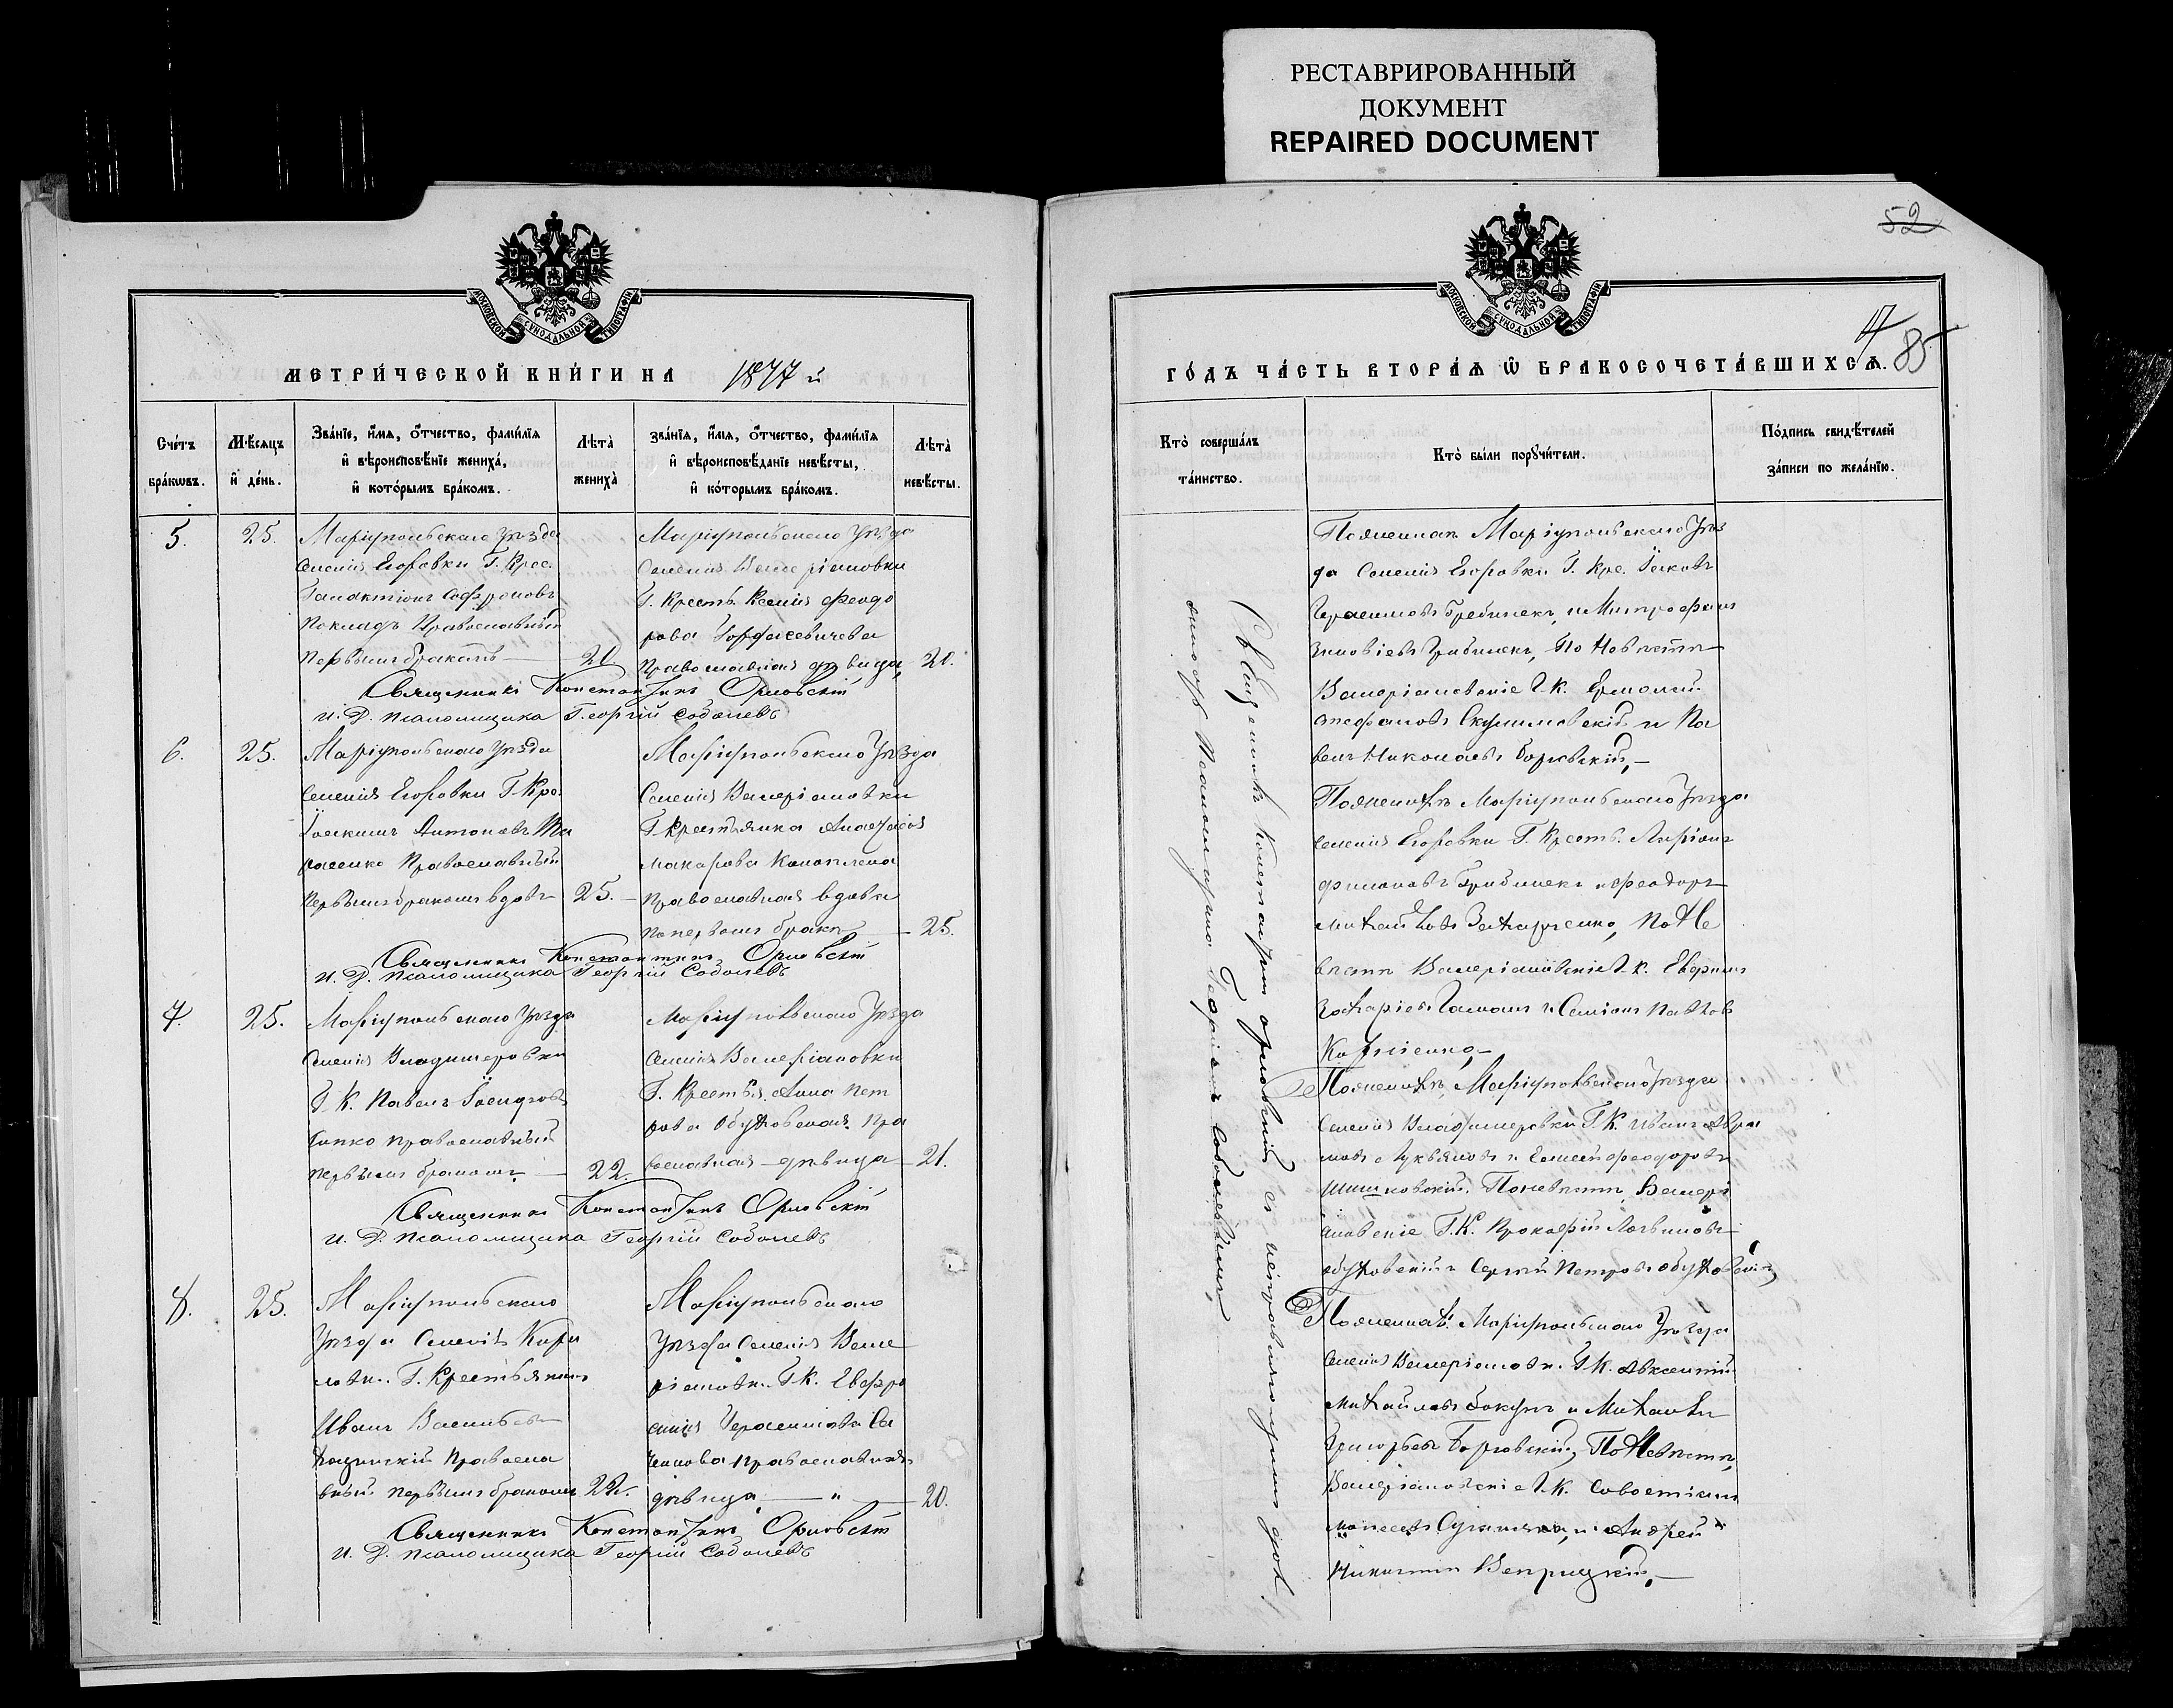 РЕСТАВРИРОВАННЫЙ
ДОКУМЕНТ
REPAIRED DOCUMENT
52
МОСКОВСКОЙ СѴНОДАЛЬНОЙ ТИПОГРАФІИ
МЕТРИ́ЧЕСКОЙ КНИ́ГИ НА 1877 й
Сче́тъ
бра́кѡвъ.
Мѣ́сяцъ
и҆ де́нь.
Зва́нїе, и҆́мѧ, ѻ҆́тчество, фами́лїѧ
и҆ вѣроисповѣ́нїе жениха́,
и҆ кото́рымъ бра́комъ.
Лѣта̀
жениха̀
зва́нїѧ, и҆́мѧ, ѻ҆́тчество, фами́лїѧ
и҆ вѣроисповѣ́данїе невѣ́сты,
и҆ ко́торымъ бра́комъ.
Лѣта̀
невѣ́сты.
5.
25.
Маріупольскаго Уѣзда
Селенія Егоровки Г. Крес.
Галактіонъ Софроновъ
Православный
Первымъ бракомъ — 20
Маріупольскаго Уѣзда
Селенія Валеріановки
Г. Крестъ. Ксенія Феодо
рова
Православная дѣвица, 20.
Священникъ Константинъ Орловскій
И. Д. Псаломщика Георгій Соболевъ
6.
25.
Маріупольскаго Уѣзда
Селенія Егоровки Г. Кре.
Іоакимъ Антоновъ Та
расенко Православный
Первымъ бракомъ вдовъ 25. —
Маріупольскаго Уѣзда
Селенія Валеріановки
Г. Крестьянка Анастасія
Макарова Коноплева
Православная вдова
по первомъ бракѣ — 25.
Священникъ Константинъ Орловскій
И. Д. Псаломщика Георгій Соболевъ
7.
25.
Маріупольскаго Уѣзда
Селенія Владимеровки
Г. К. Павелъ
православный
первымъ бракомъ — 22.
Маріупольскаго Уѣзда
Селенія Валеріановки
Г. Крестья. Анна Пет
рова Обуховская. Пра
вославная — дѣвица — 21.
Священникъ Константинъ Орловскій
И. Д. Псаломщика Георгій Соболевъ
8.
25.
Маріупольскаго
Уѣзда Селенія Кири
ловки. Г. Крестьянинъ
Иванъ Васильевъ
Правосла
вный. первымъ бракомъ 22.
Маріупольскаго
Уѣзда Селенія Вале
ріановки. Г. К. Евфро
синія Герасимова
Православная
дѣвица — " — 20.
Священникъ Константинъ Орловскій
И. Д. Псаломщика Георгій Соболевъ
МОСКОВСКОЙ СѴНОДАЛЬНОЙ ТИПОГРАФІИ
85
ГО́ДЪ ЧА́СТЬ ВТОРА́Ѧ Ѽ БРАКОСОЧЕТА́ВШИХСѦ.
Кто̀ соверша́лъ
та́инство.
Кто̀ бы́ли порꙋчи́тели.
По́дпись свидѣ́телей
за́писи по жела́нїю.
Священникъ Константинъ Орловскій съ исправляющимъ долж
ность Псаломщика Георгіемъ Соболевымъ
По женихѣ Маріупольскаго Уѣз
да Селенія Егоровки Г. Кре. Іаковъ
Герасимовъ Гребинекъ, и Митрофанъ
Зиновіевъ Грибинекъ, По Невѣстѣ
Валеріановскіе Г. К. Ермолай
Стефановъ и Па
велъ Николаевъ Борговскій, —
По женихѣ Маріупольскаго Уѣзда
Селенія Егоровки Г. Крестъ. Ларіонъ
Филиповъ Грибинекъ и Феодоръ
Михайловъ Захарченко, По Не
вѣстѣ Валеріановскіе Г. К.
Захаріевъ и Симіонъ Павлов
По женихѣ, Маріупольскаго Уѣзда
Селенія Владимеровки Г. К. Иванъ Авра
мовъ Лукьяновъ и Елисей Феодоровъ
Шишковскій. По невѣстѣ Валері
ановскіе Г. К. Прокофій Логвиновъ
Обуховскій и Сергій Петровъ Обуховскій
По женихѣ. Маріупольскаго Уѣзда
Селенія Валеріановки. Г. К. Авксентій
Михайловъ и Михаилъ
Григорьевъ Борговскій, По Невѣстѣ,
Валеріановскіе Г. К. Савостіянъ
и Андрей
Никитинъ Веприцкій, —